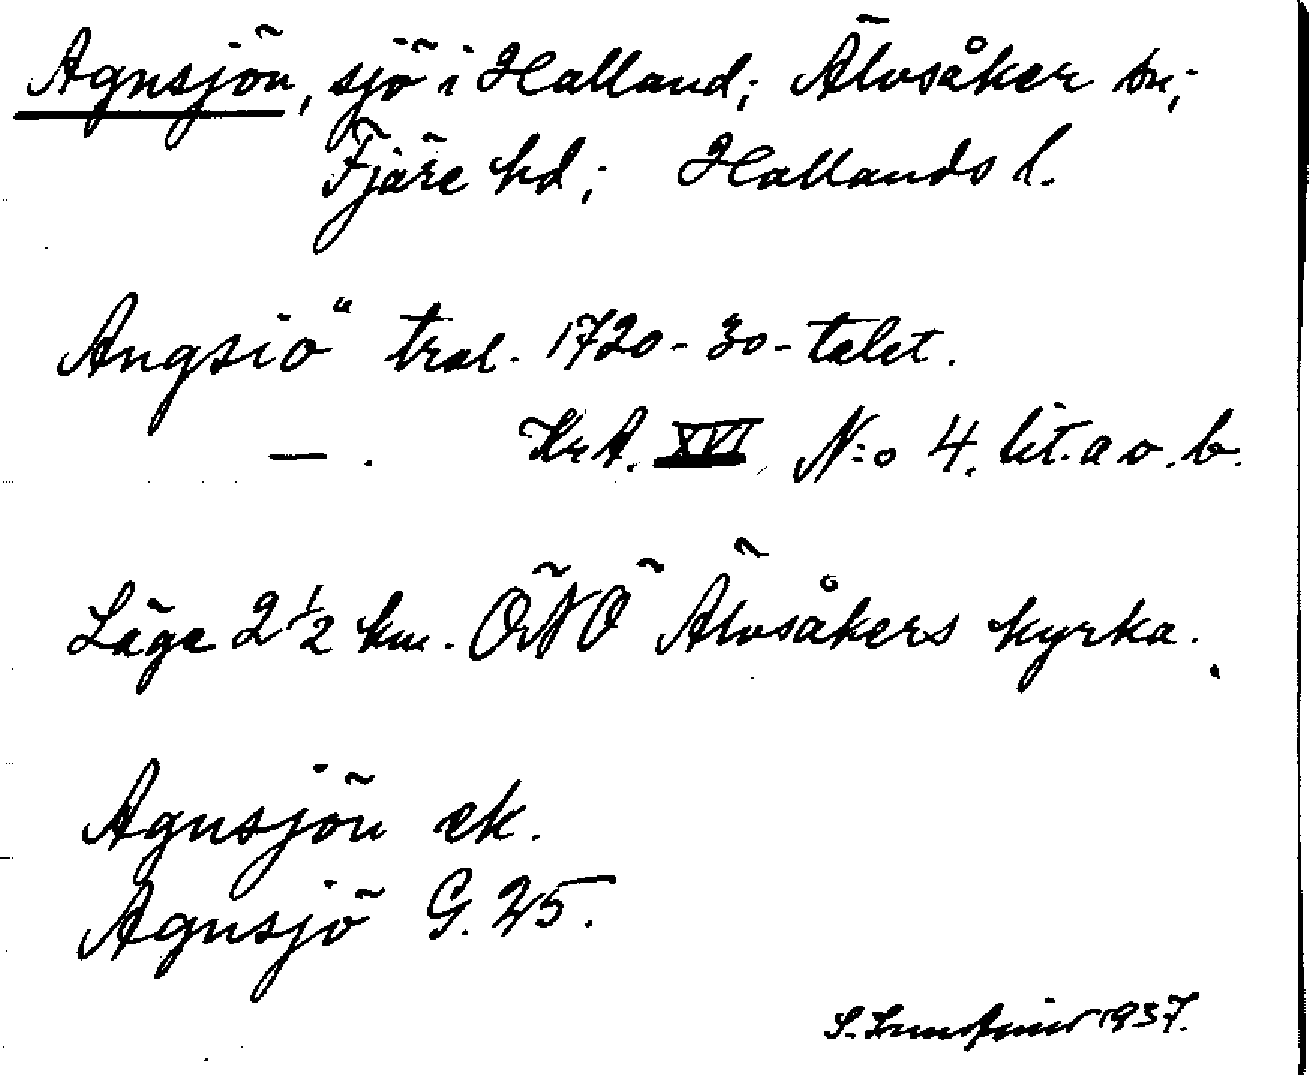 Agnsjön, sjö i Halland; Älvsåker sn;
Fjäre hd; Hallands l.
Angsiö" tral. 1720-30-talet.
— . KrA. XVI N:o 4. lit. a o. b.
Läge 2 1/2 km. ÖNÖ Älvsåkers kyrka.
Agnsjön ek.
Agnsjö G. 25.
S. 1937.